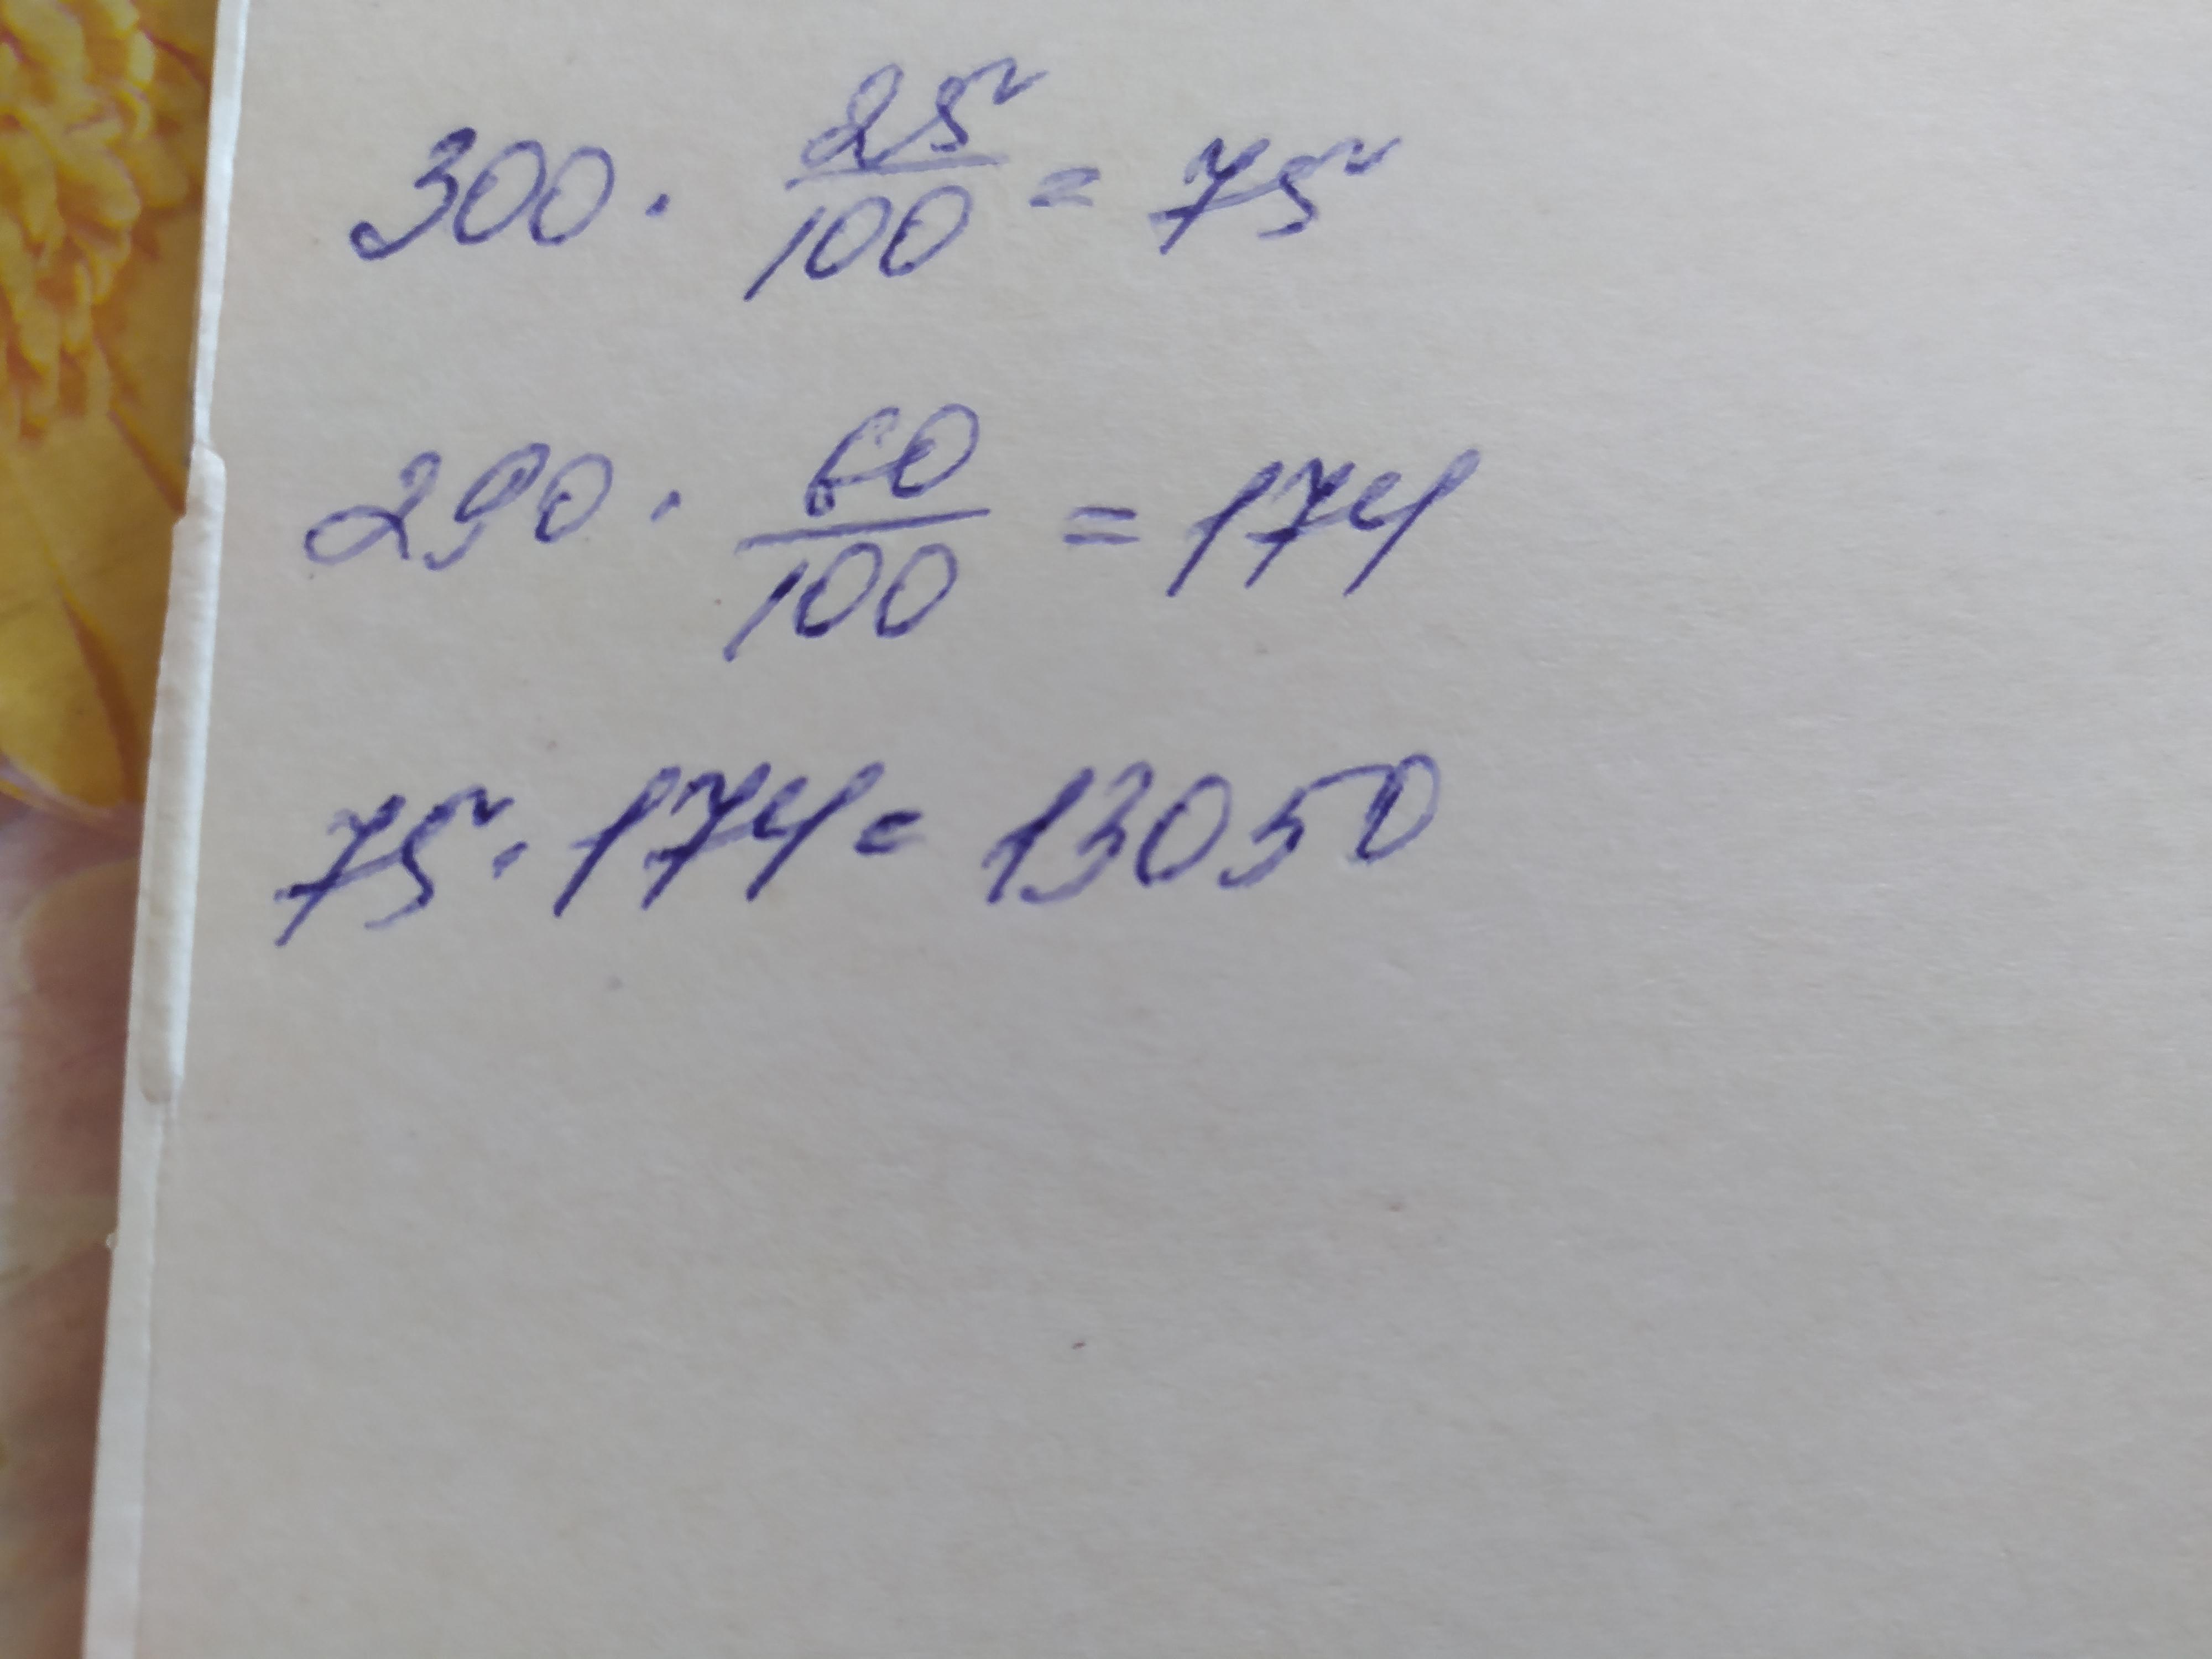 300 · 25/100 = 75
290 · 60/100 = 174
75 · 174 = 13050